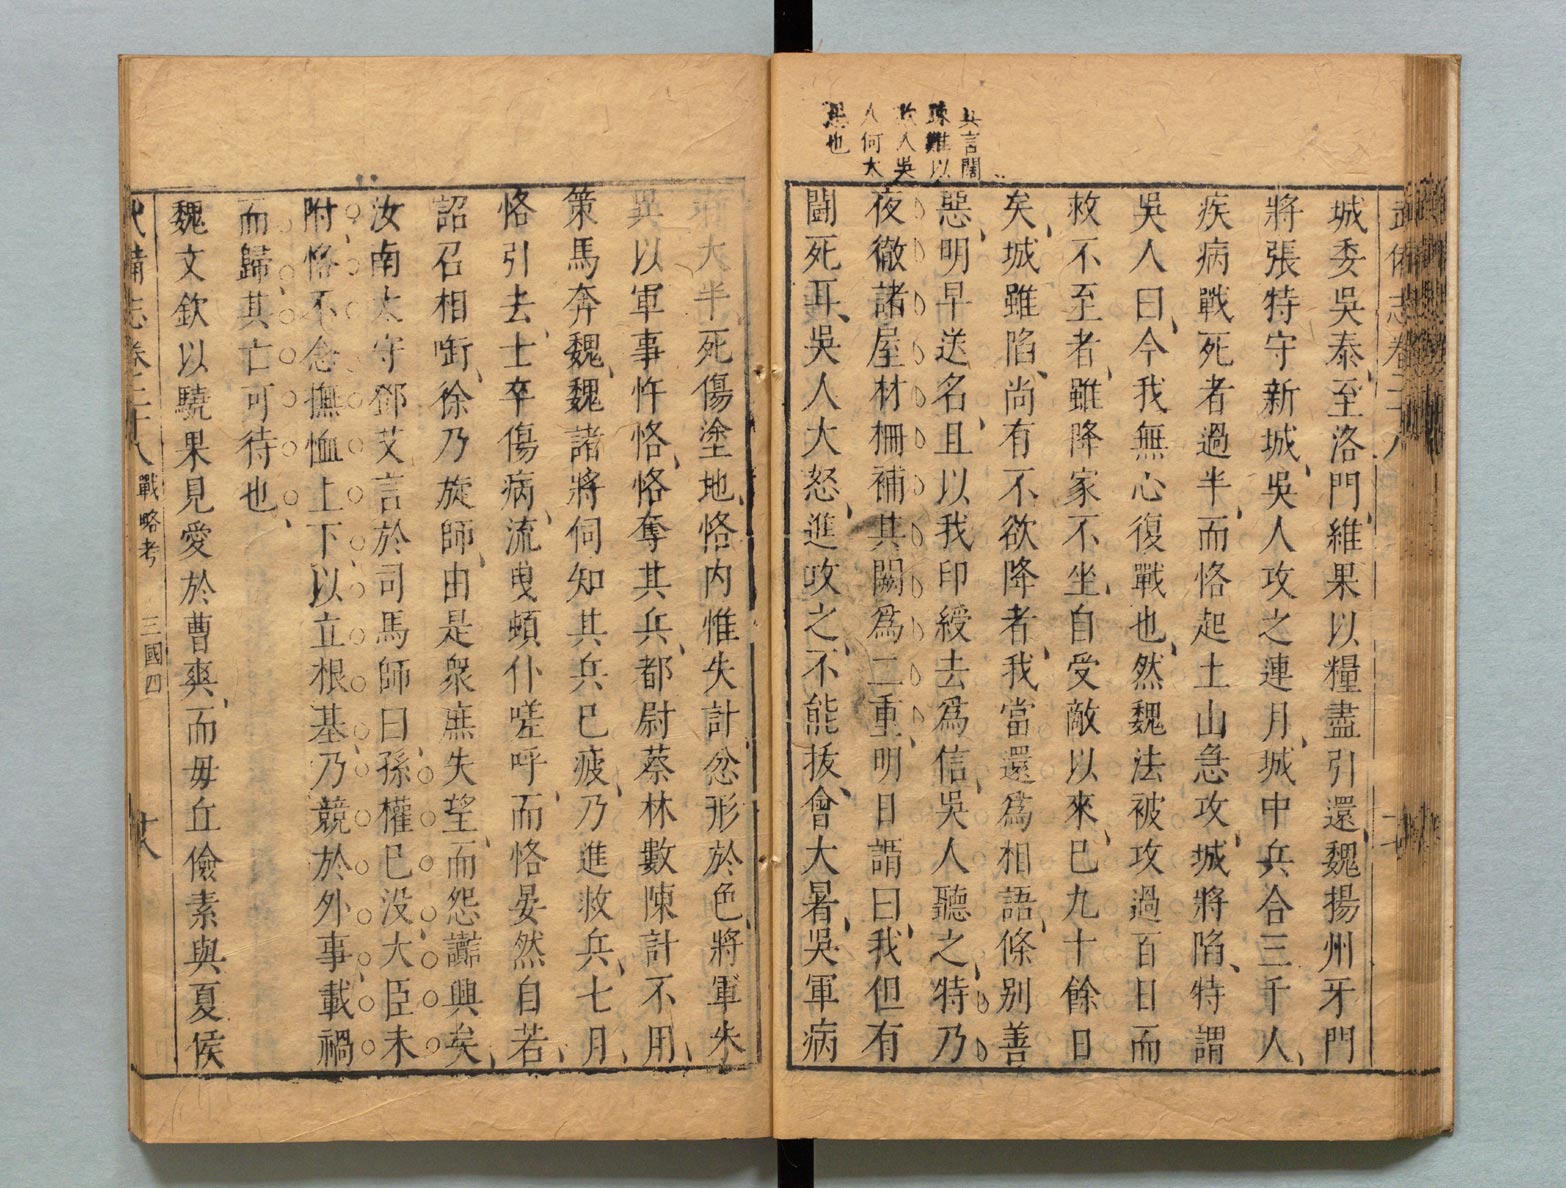 武備志卷二十八
城委吳泰至洛門維果以糧盡引還魏揚州牙門
將張特守新城吳人攻之連月城中兵合三千人
疾病戰死者過半而恪起土山急攻城將陷特謂
吳人曰今我無心復戰也然魏法被攻過百日而
救不至者雖降家不坐自受敵以來已九十餘日
矣城雖陷尚有不欲降者我當還爲相語條別善
惡明早送名且以我印綬去爲信吳人聽之特乃
夜徹諸屋材柵補其闕爲二重明日謂曰我但有
鬪死耳吳人大怒進攻之不能拔會大暑吳軍病
其言闊
疎難以
欺人吳
人何大
愚也
者大半死傷塗地恪內惟失計忿形於色將軍朱
異以軍事忤恪恪奪其兵都尉蔡林數陳計不用
策馬奔魏魏諸將伺知其兵已疲乃進救兵七月
恪引去士卒傷病流曳頓仆嗟呼而恪晏然自若
詔召相啣徐乃旋師由是衆庶失望而怨讟興矣
汝南太守鄧艾言於司馬師曰孫權已沒大臣未
附恪不念撫恤上下以立根基乃競於外事載禍
而歸其亡可待也
魏文欽以驍果見愛於曹爽而毋丘儉素與夏侯
武備志卷二十八 戰略考 三國四